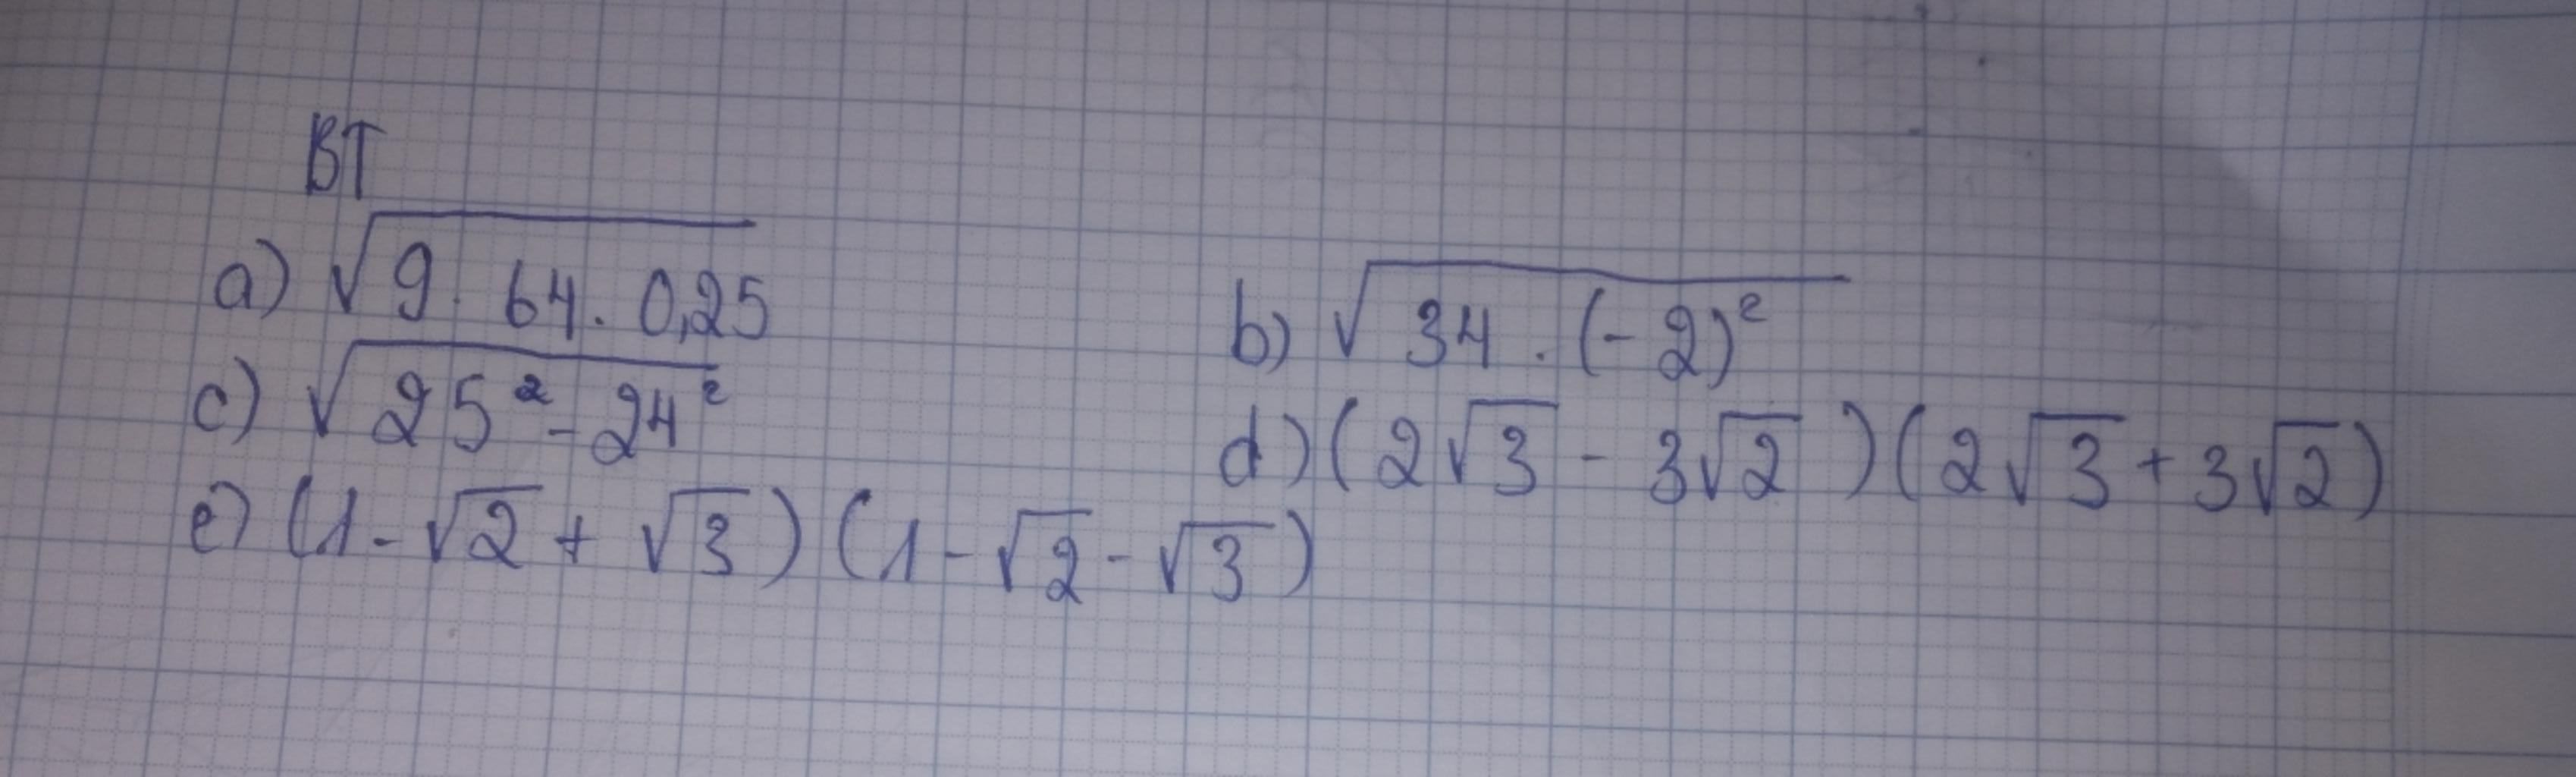 BT
a) √(9. 64. 0,25)
b) √(34 . (-2)²)
c) √(25² - 24²)
d) (2√3 - 3√2)(2√3 + 3√2)
e) (1 - √2 + √3)(1 - √2 - √3)